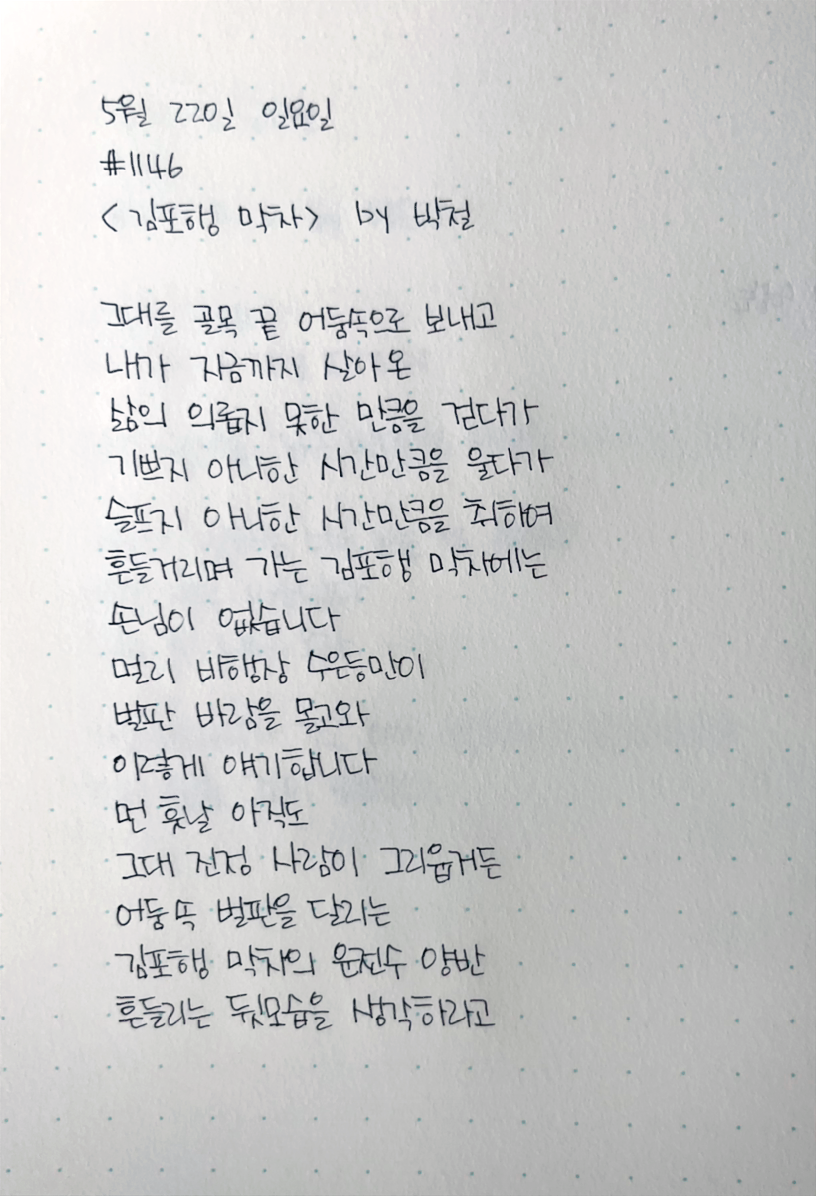 5월 220일 일요일
#1146
<김포행 막차> by 박철
그대를 골목 끝 어둠속으로 보내고
내가 지금까지 살아온
삶의 의롭지 못한 만큼을 걷다가
기쁘지 아니한 시간만큼을 울다가
슬프지 아니한 시간만큼을 취하여
흔들거리며 가는 김포행 막차에는
손님이 없습니다
멀리 비행장 수은등만이
벌판 바람을 몰고와
이렇게 얘기합니다
먼 훗날 아직도
그대 진정 사람이 그리웁거든
어둠 속 벌판을 달리는
김포행 막차의 운전수 양반
흔들리는 뒷모습을 생각하라고